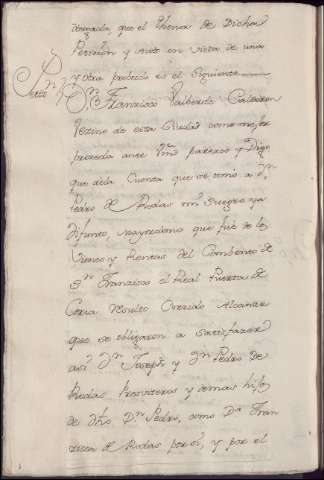 otorgada, que el thenor de Dicha
Peticion y auto en vista de una
y otra probeido es el siguiente
Petic.on
Dn. Francisco Balberde Calderon
Vezino de esta Ciudad como mejor
proceda ante Vmd. paresco y Digo
que dela Cuenta que se tomo a Dn.
Pedro de Rodas mi Suegro ya
difunto, mayordomo que fué de los
Vienes y Rentas del Combento de
Sn. Francisco el Real Puerta de
Coria Resulto Crecido Alcanze
que se obligaron a satisfazer
asi Dn. Joseph y Dn. Pedro de
Rodas Presviteros y demas hijos
de dho. Dn. Pedro, como Da. Fran
cisca de Rodas por si, y por el